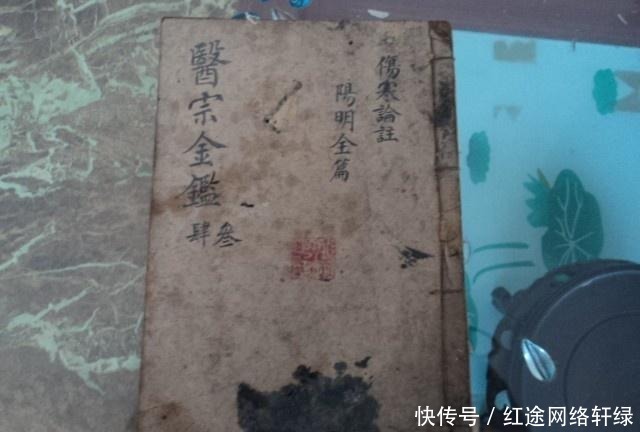 傷寒論註
陽明全篇
醫宗金鑑
叁
肆
快传号 / 红途网络轩绿